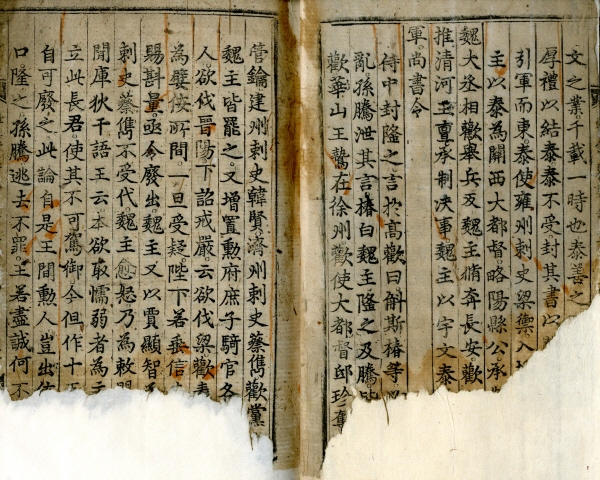 文之業千載一時也泰善之
厚禮以結泰泰不受封其書以
引軍而東泰使雍州刺史梁禦入
主以泰為關西大都督略陽縣公承
魏大丞相歡舉兵反魏主脩奔長安歡
推清河王亶承制決事魏主以宇文泰
軍尚書令
侍中封隆之言於高歡曰斛斯椿等
亂孫騰泄其言椿白魏主隆之及騰皆
歡華山王鷙在徐州歡使大都督邸珍奪
管鑰建州刺史韓賢濟州刺史蔡儁歡黨
魏主皆罷之又增置勳府庶子騎官各
人欲伐晉陽下詔戒嚴云欲伐梁歡表
為嬖佞所間一旦受疑陛下若垂信
賜斟量亟令廢出魏主又以賈顯智
刺史蔡儁不受代魏主愈怒乃為敕
聞庫狄干語王云本欲取懦弱者為
立此長君使其不可駕御今但作十
自可廢之此論自是王間勳人豈出佞
口隆之孫騰逃去不罪王若盡誠何不